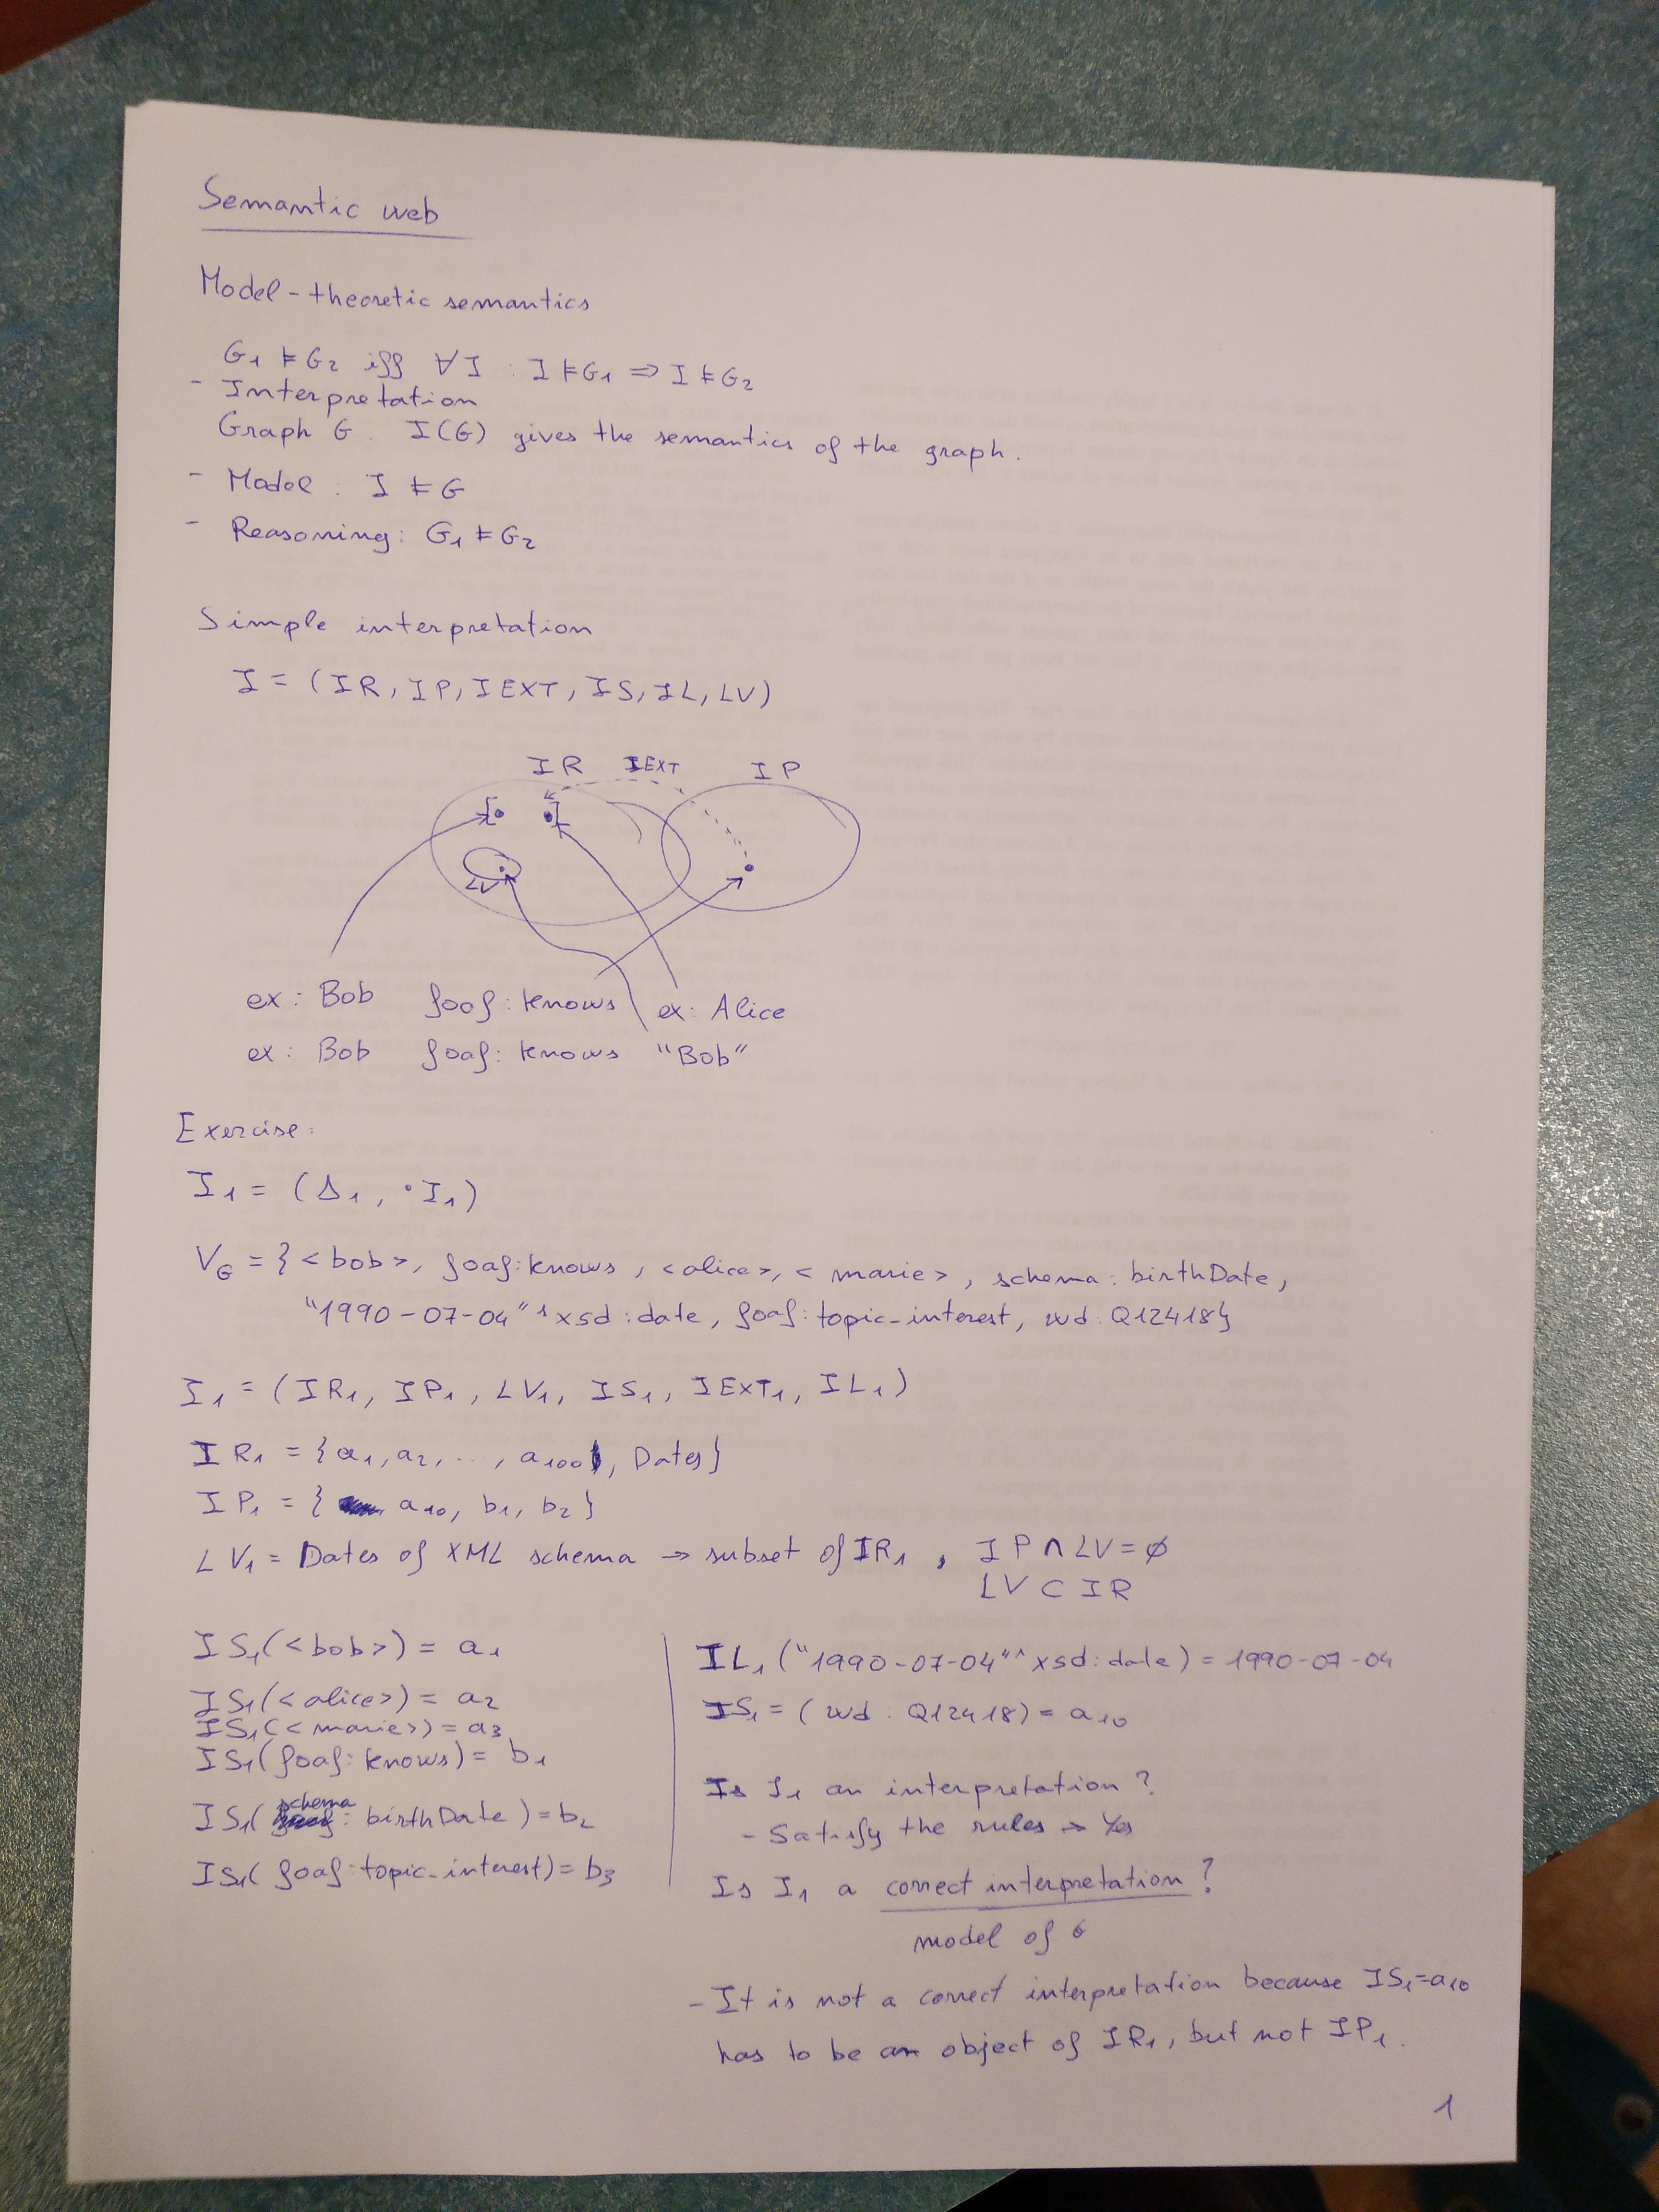 Semantic web
Model-theoretic semantics
G1 ⊨ G2 iff ∀I : I ⊨ G1 ⇒ I ⊨ G2
- Interpretation
Graph G. I(G) gives the semantics of the graph.
- Model : I ⊨ G
- Reasoning: G1 ⊨ G2
Simple interpretation
I = (IR, IP, IEXT, IS, IL, LV)
IR IEXT IP
LV
ex: Bob foaf: knows ex: Alice
ex: Bob foaf: knows "Bob"
Exercise:
I1 = (Δ1, ·I1)
VG = {<bob>, foaf:knows, <alice>, <marie>, schema:birthDate,
"1990-07-04"^xsd:date, foaf:topic_interest, wd:Q12418}
I1 = (IR1, IP1, LV1, IS1, IEXT1, IL1)
IR1 = {a1, a2, ..., a100, Dates}
IP1 = { a10, b1, b2}
LV1 = Dates of XML schema → subset of IR1, IP ∩ LV = ∅
LV ⊂ IR
IS1(<bob>) = a1
IS1(<alice>) = a2
IS1(<marie>) = a3
IS1(foaf: knows) = b1
IS1(schema: birthDate) = b2
IS1(foaf:topic_interest) = b3
IL1("1990-07-04"^^xsd:date) = 1990-07-04
IS1 = (wd. Q12418) = a10
Is I1 an interpretation?
- Satisfy the rules → Yes
Is I1 a correct interpretation?
model of G
- It is not a correct interpretation because IS1=a10
has to be an object of IR1, but not IP1.
1